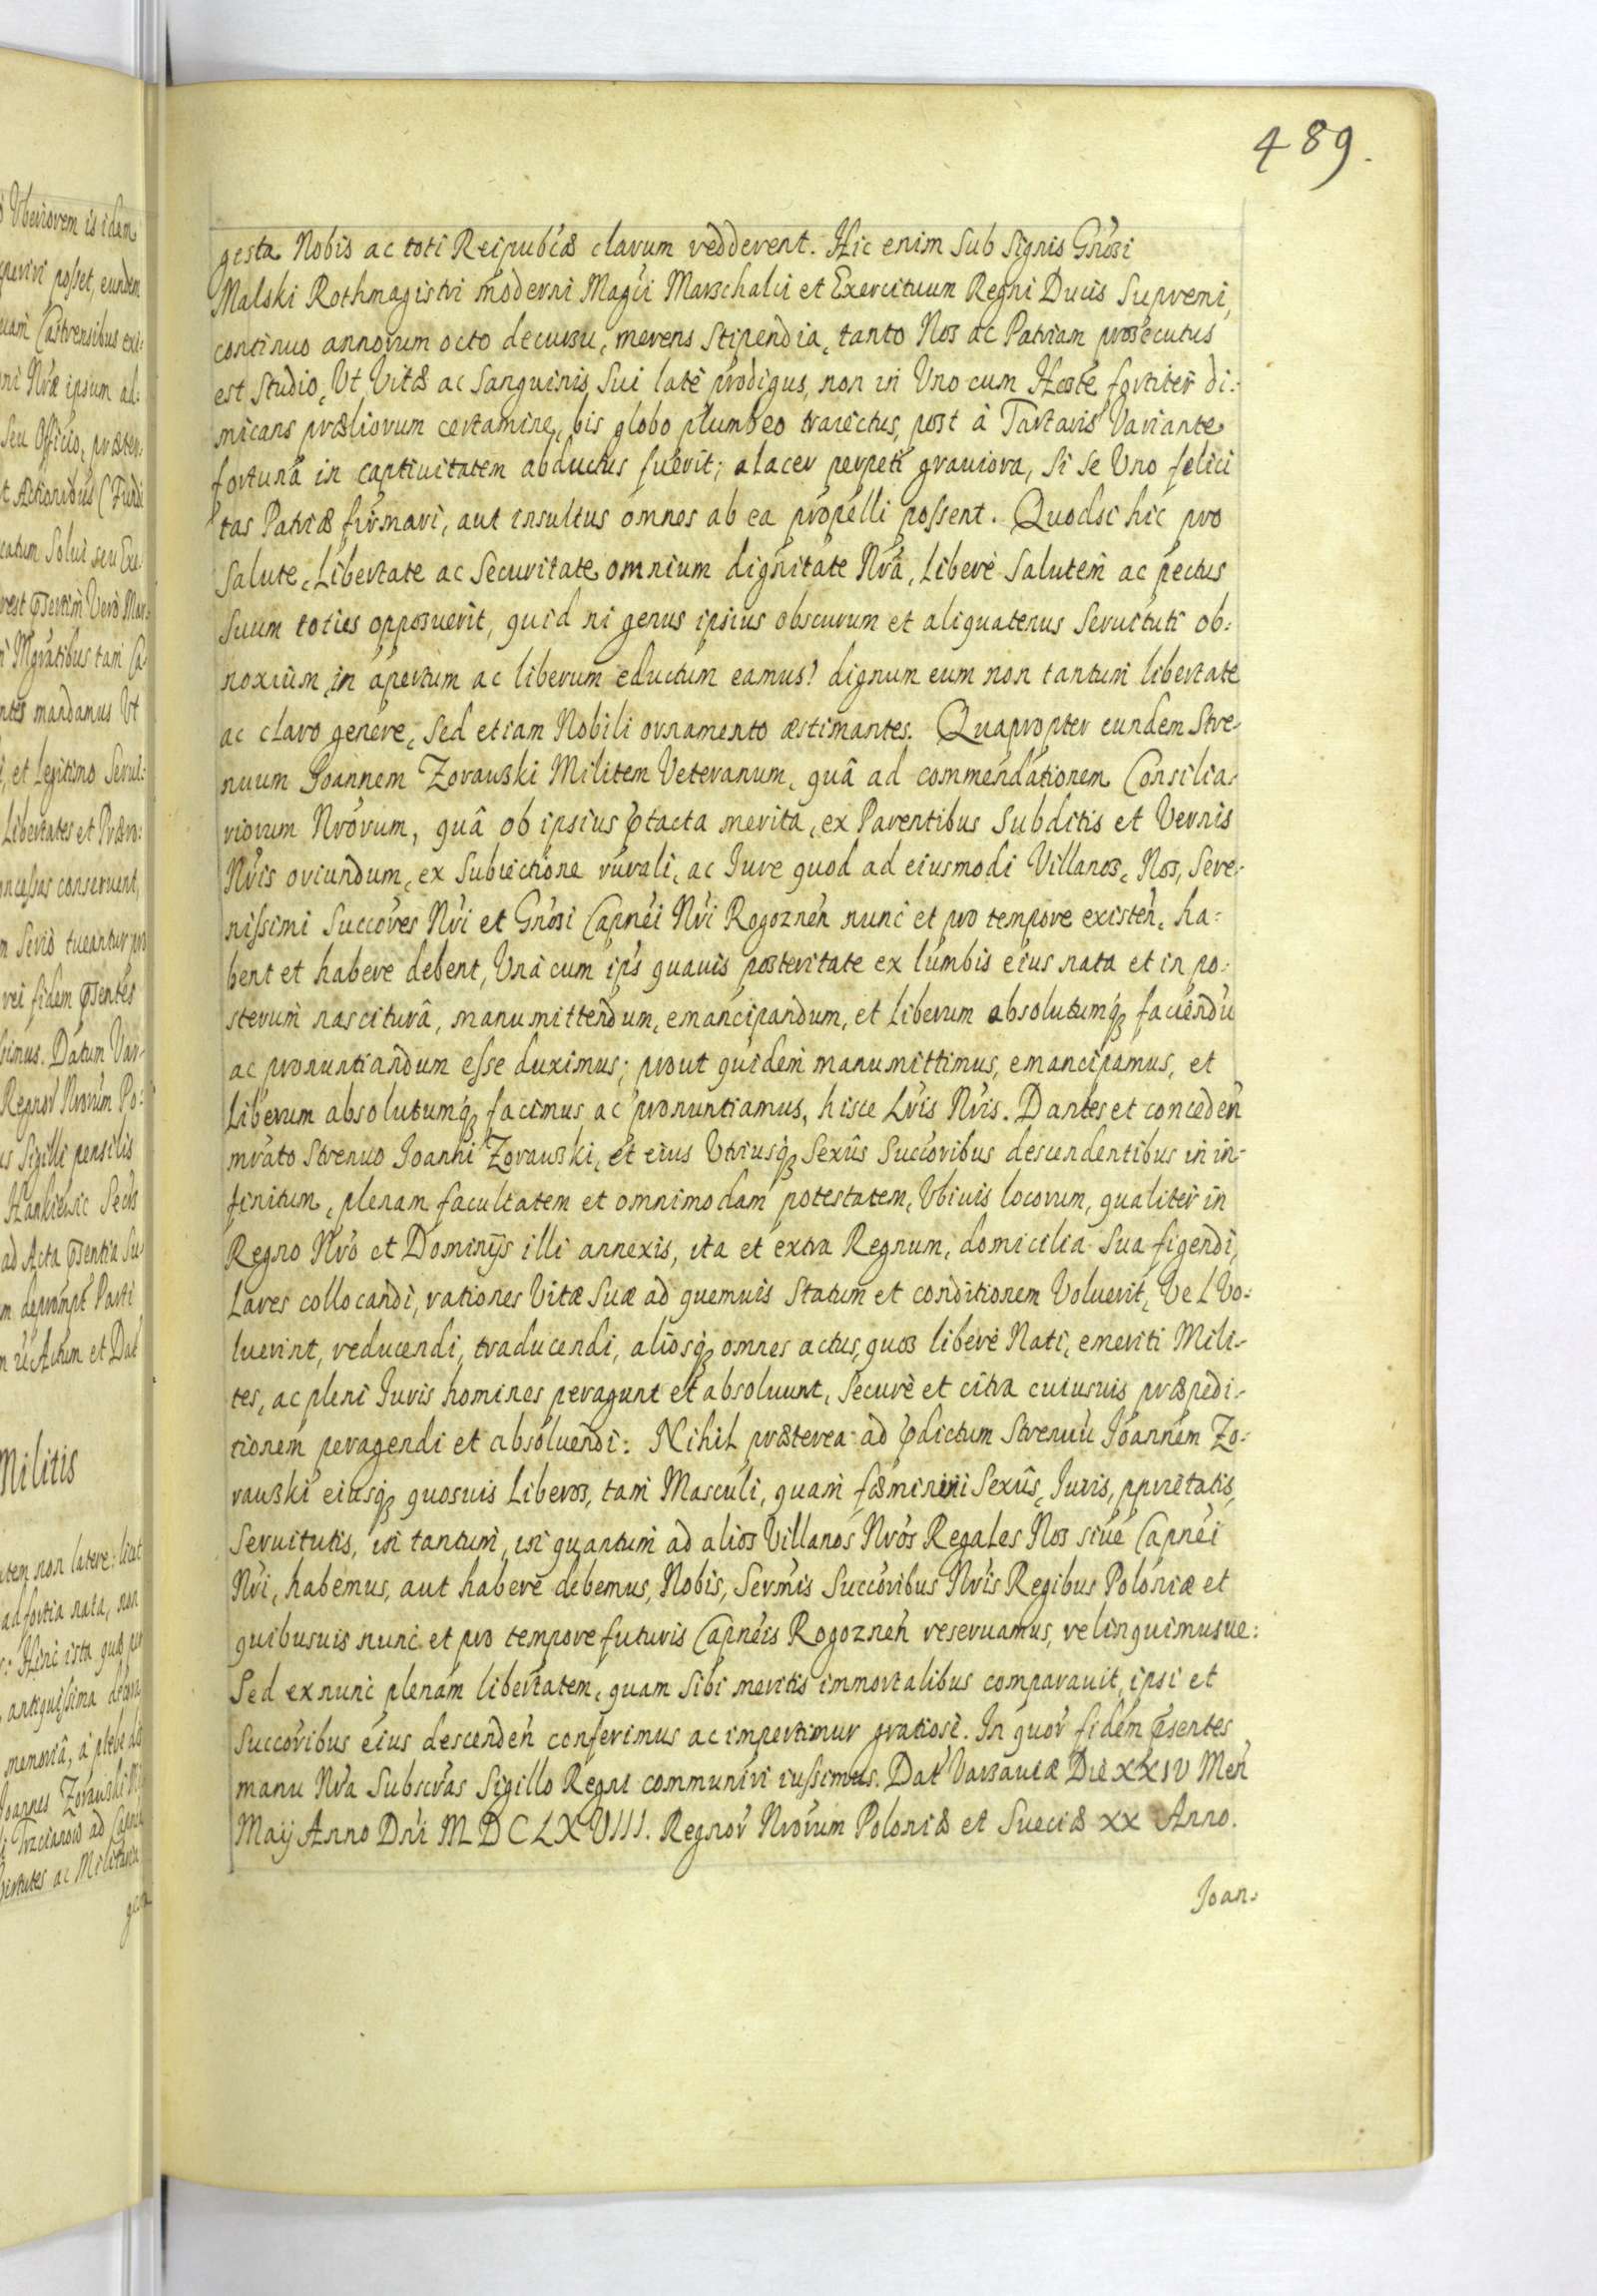 489.
gesta Nobis ac toti Reipubcæ clarum redderent. Hic enim sub signis Gnosi
Malski Rothmagistri moderni Magci Marschalci et Exercituum Regni Ducis Supremi,
continuo annorum octo decursu, merens stipendia, tanto Nos ac Patriam prosecutus
est studio, Ut Vitæ ac sanguinis sui latè prodigus, non in Uno cum Hoste fortiter di:
micans præliorum certamine, bis globo plumbeo traiectus, post à Tartaris Variante
fortunâ in captiuitatem abductus fuerit; alacer perpeti grauiora, si se Uno felici
tas Patriæ firmari, aut insultus omnes ab ea propelli possent. Quodsi hic pro
salute, Libertate ac securitate omnium dignitate Nrâ, Liberè salutem ac pectus
suum toties opposuerit, quid ni genus ipsius obscurum et aliquatenus seruituti ob:
noxium, in apertum ac liberum eductum eamus? dignum eum non tantum libertate
ac claro genere, sed etiam Nobili ornamento æstimantes. Quapropter eundem Stre-
nuum Joannem Zorauski Militem Veteranum, quâ ad commendationem Consilia-
riorum Nrorum, quâ ob ipsius ꝑtacta merita, ex Parentibus Subditis et Vernis
Nris oriundum, ex subiectione rurali, ac Iure quod ad eiusmodi Villanos, Nos, Sere-
nissimi Succores Nri et Gnosi Capnei Nri Rogoznen nunc et pro tempore existen, ha:
bent et habere debent, Unâ cum ips quauis posteritate ex lumbis eius nata et in po:
sterum nascitura, manumittendum, emancipandum, et Liberum absolutumq faciendu
ac pronuntiandum esse duximus; prout quidem manumittimus, emancipamus, et
Liberum absolutumq facimus ac pronuntiamus, hisce Lris Nris. Dantes et conceden
mrato Strenuo Joanni Zorauski, et eius Utriusq Sexûs Succoribus descendentibus in in-
finitum, plenam facultatem et omnimodam potestatem, Ubiuis locorum, qualiter in
Regno Nro et Dominijs illi annexis, ita et extra Regnum, domicilia sua figendi,
Lares collocandi, rationes Vitæ suæ ad quemuis statum et conditionem Voluerit, Vel Vo:
luerint, reducendi, traducendi, aliosq omnes actus, quos liberè Nati, emeriti Mili-
tes, ac pleni Iuris homines peragunt et absoluunt, securè et citra cuiusuis præpedi-
tionem peragendi et absoluendi: Nihil præterea ad ꝑdictum Strenuu Joannem Zo:
rauski eiusq quosuis Liberos, tam Masculi, quam fæminini Sexûs, Iuris, ppristatis,
Seruitutis, in tantum, in quantum ad alios Villanos Nros Regales Nos siue Capnei
Nri, habemus, aut habere debemus, Nobis, Sermis Succoribus Nris Regibus Poloniæ et
quibusuis nunc et pro tempore futuris Capneis Rogoznen reseruamus, relinquimusue:
Sed ex nunc plenam libertatem, quam sibi meritis immortalibus comparauit, ipsi et
Succoribus eius descenden conferimus ac impertimur gratiosè. In quor fidem ꝑsentes
manu Nra Subscras Sigillo Regni communiri iussimus. Dat Varsauiæ Die XXIV Men
Maij Anno Dni MDCLXVIII. Regnor Nrorum Poloniæ et Sueciæ XX Anno.
Joan-